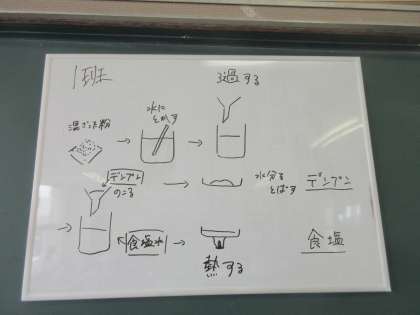 1班
ろ過する
混ざった粉
水に
とかす
デンプン
のこる
水分を
とばす
デンプン
食塩水
熱する
食塩